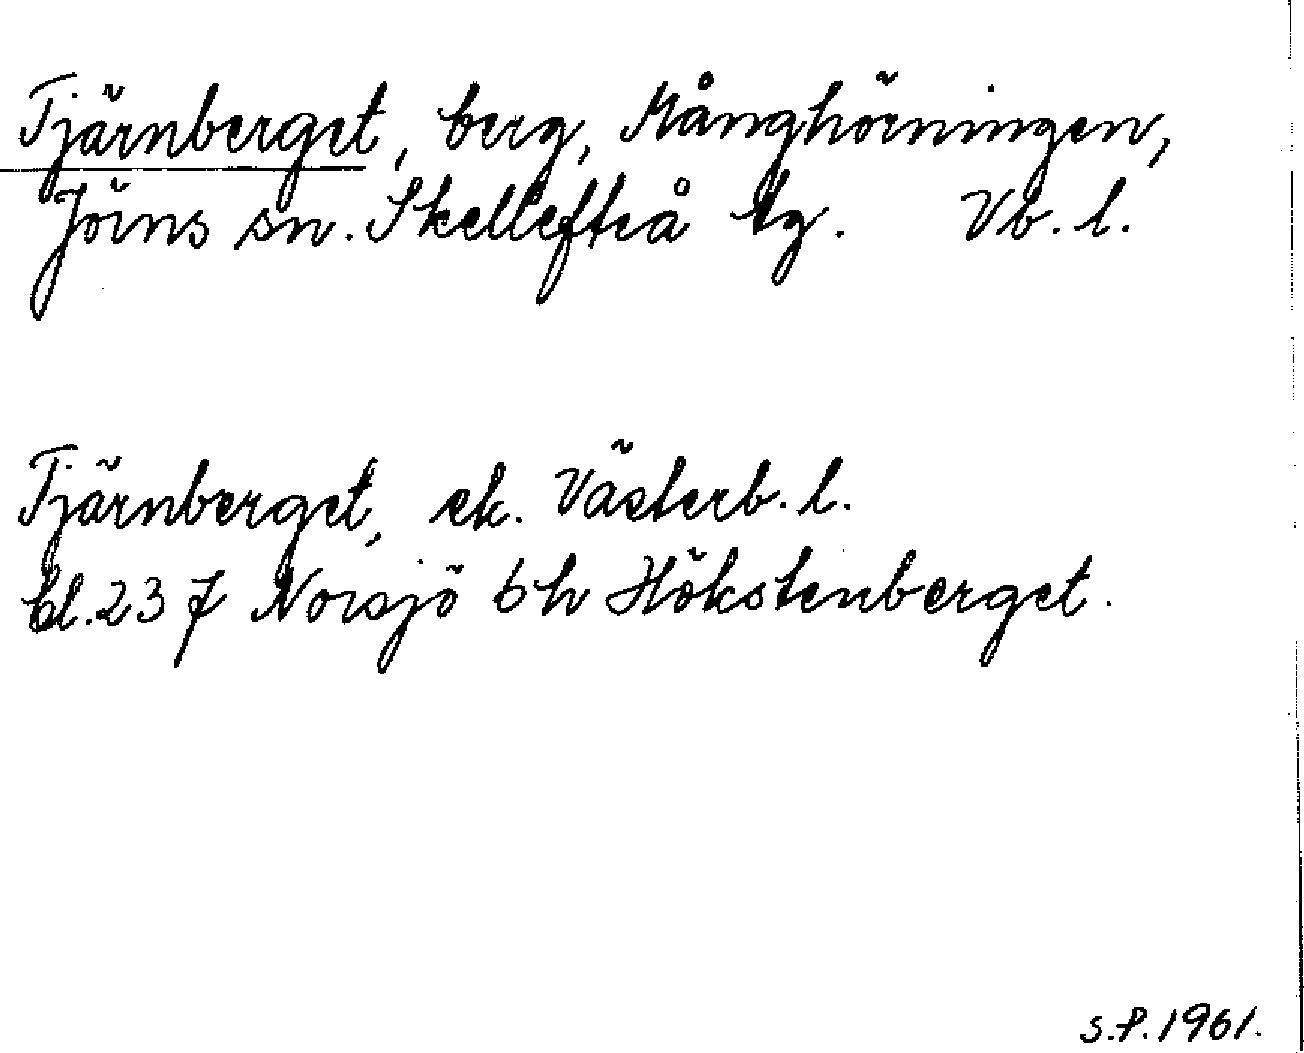 Tjärnberget, berg, Månghörningen,
Jörns sn. Skellefteå tg. Vb. l.
Tjärnberget, ek. Västerb. l.
bl. 237 Norsjö bh Hökstenberget.
S.P. 1961.